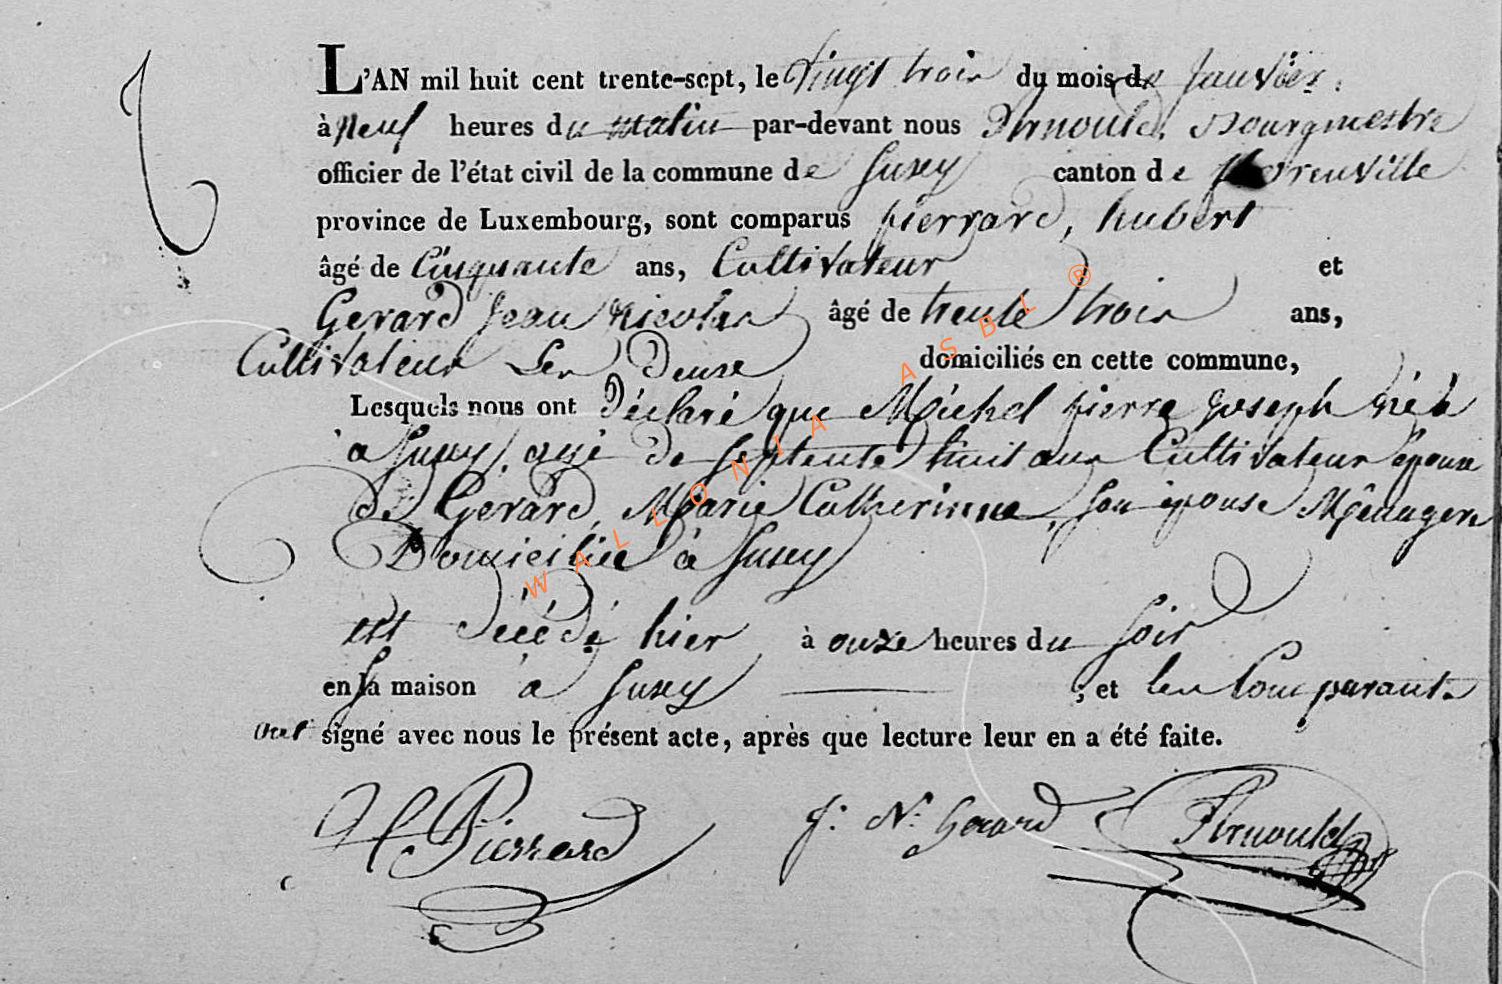 L'AN mil huit cent trente-sept, le vingt trois du mois de Janvier.
à neuf heures du matin par-devant nous Arnould, Bourgmestre
officier de l'état civil de la commune de Suxy canton de florenville
province de Luxembourg, sont comparus pierrard, hubert
âgé de Cinquante ans, Cultivateur et
Gerard Jean Nicolas âgé de trente trois ans,
Cultivateur Les Deux domiciliés en cette commune,
Lesquels nous ont déclaré que Michel pierre Joseph né
à Suxy, agé de septente huit ans Cultivateur époux
de Gerard, Marie Catherinne, son épouse Ménagere
Domiciliée à Suxy
est décédé hier à onze heures du soir
en sa maison à Suxy ; et les Comparants
ont signé avec nous le présent acte, après que lecture leur en a été faite.
H Pierrard J. N. Gerard Arnould
WALLONIA ASBL ®